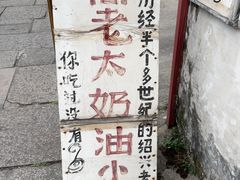 历经半个多世纪的绍兴老
老太奶油小
你吃过没有